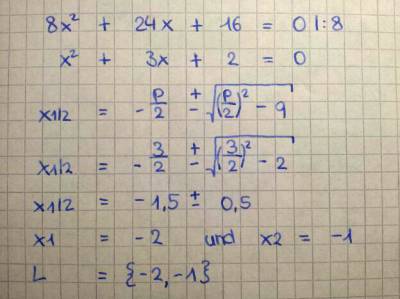 8x² + 24x + 16 = 0 |:8
x² + 3x + 2 = 0
x1/2 = - p/2 ± √((p/2)² - q)
x1/2 = - 3/2 ± √((3/2)² - 2)
x1/2 = -1,5 ± 0,5
x1 = -2 und x2 = -1
L = {-2, -1}